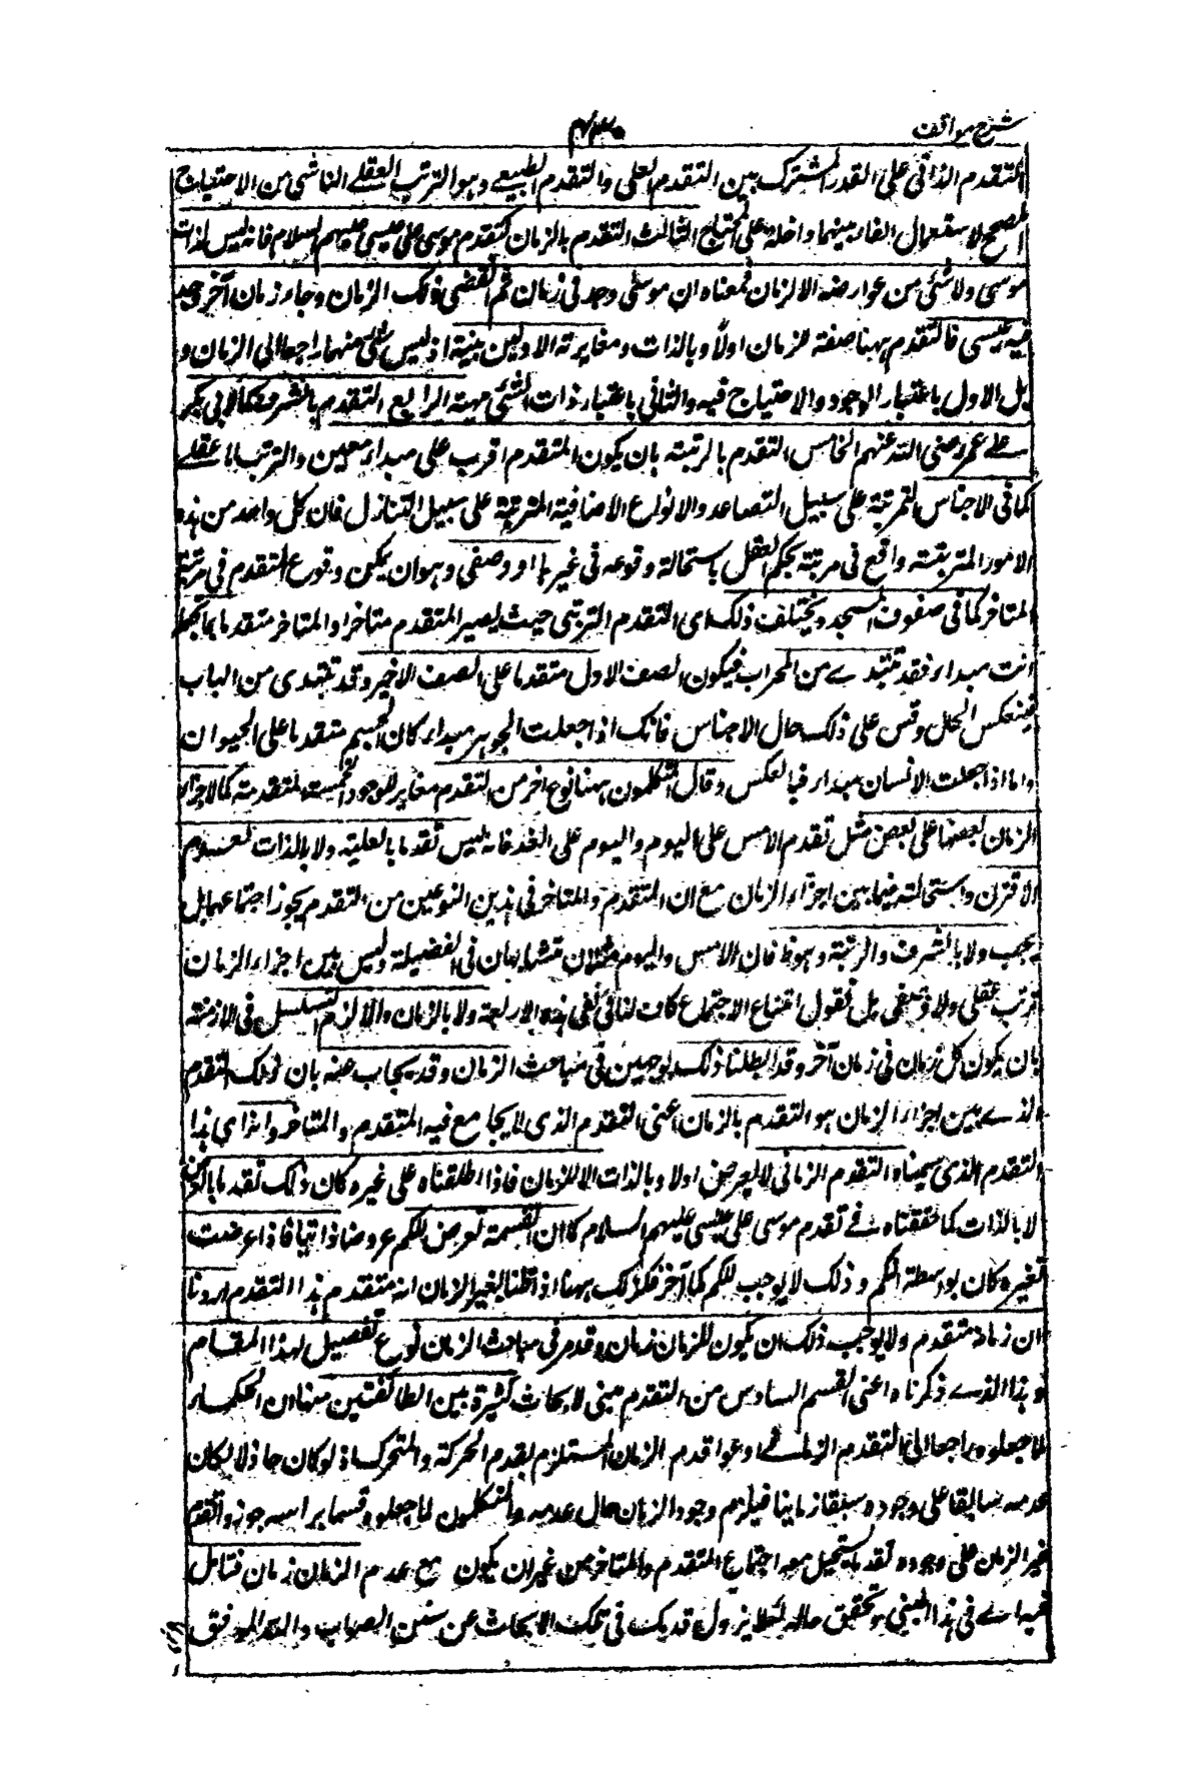 شرح مواقف
۴۳۰
التقدم الذاتى على القدر المشترك بين التقدم العلى والتقدم الطبيعى وهو الترتب العقلى الناشى من الاحتياج
المصحح لاستعمال الفاء بينهما وداخله على المحتاج الثالث التقدم بالزمان كتقدم موسى على عيسى عليهم السلام فانه ليس لذات
موسى ولا شئى من عوارضه الا لزمان فمعناه ان موسى وجد فى زمان ثم انقضى ذلك الزمان وجاء زمان آخر وجد
فيه عيسى فالتقدم ههنا صفة للزمان اولاً وبالذات ومغايرته الاولين بينة اذ ليس شئى منهما راجعا الى الزمان و
بل الاول باعتبار الوجود والاحتياج فيه والثانى باعتبار ذات الشئى مهيته الرابع التقدم بالشرف كما لابى بكر
على عمر رضى الله عنهم الخامس التقدم بالرتبة بان يكون المتقدم اقرب على مبداء معين والترتب اما عقلى
كما فى الاجناس المرتبة على سبيل التصاعد والانواع الاضافية المترتبة على سبيل التنازل فان كل واحد من هذه
الامور المترتبة واقع فى مرتبة يحكم العقل باستحالة وقوعه فى غيرها او وضعى وهو ان يمكن وقوع المتقدم فى مرتبة
المتاخر كما فى صفوف المسجد ويختلف ذلك اى التقدم الترتبى حيث يصير المتقدم متاخرا والمتاخر متقدما بما تجعله
انت مبداء فقد تبتدى من المحراب فيكون الصف الاول متقدما على الصف الاخير وقد تبتدى من الباب
فينعكس الحال وقس على ذلك حال الاجناس فانك اذا جعلت الجوهر مبداء كان الجسم متقدما على الحيوان
واما اذا جعلت الانسان مبداء فبالعكس وقال المتكلمون ههنا نوع اخر من التقدم مغاير للوجوه الخمسة المتقدمة كما لاجزاء
الزمان بعضها على بعض مثل تقدم الامس على اليوم واليوم على الغد فانه ليس تقدما بالعلية ولا بالذات لعدم
الاقتران واستحالته فيما بين اجزاء الزمان مع ان المتقدم والمتاخر فى هذين النوعين من التقدم يجوز اجتماعهما بل
يجب ولا بالشرف والرتبة وهو ظ فان الامس واليوم مثلان متشابهان فى الفضيلة وليس بين اجزاء الزمان
ترتب عقلى ولا وضعى بل نقول امتناع الاجتماع كاف لنا فى نفى هذه الاربعة ولا بالزمان والا لزم التسلسل فى الازمنة
بان يكون كل زمان فى زمان آخر وقد ابطلنا ذلك بوجهين فى مباحث الزمان وقد يجاب عنه بان ذلك التقدم
الذى بين اجزاء الزمان هو التقدم بالزمان اعنى التقدم الذى لا يجامع فيه المتقدم والمتاخر وانذاى هذا
التقدم الذى سميناه التقدم الزمانى لا يعرض اولا وبالذات الا للزمان فاذا اطلقناه على غيره كان ذلك تقدما بالعرض
لا بالذات كما حققناه فى تقدم موسى على عيسى عليهم السلام كما ان القسمة تعرض للكم عروضا ذاتيا فاذا عرضت
لغيره كان بواسطة الكم وذلك لا يوجب للكم كما آخر فكذلك ههنا اذا قلنا لغير الزمان انه متقدم هذا التقدم اردنا
ان زمانه متقدم ولا يوجب ذلك ان يكون للزمان زمان وقد مر فى مباحث الزمان نوع تفصيل لهذا المقام
وهذا الذى ذكرناه اعنى القسم السادس من التقدم مبنى لابحاث كثيرة بين الطائفتين منها ان الحكماء
لما جعلوه راجعا الى التقدم الزمانى ادعوا قدم الزمان المستلزم لقدم الحركة والمتحرك اذ لو كان حادثا لكان
عدمه سابقا على وجوده سبقا زمانيا فيلزم وجود الزمان حال عدمه والمتكلمون لما جعلوه قسما براسه جوزوا تقدم
غير الزمان على وجوده تقدما يستحيل معه اجتماع المتقدم والمتاخر من غير ان يكون مع عدم الزمان زمان فتامل
فيه اى فى هذا المبنى وتحقق حاله لئلا يزول قدمك فى تلك الابحاث عن سنن الصواب والله الموفق